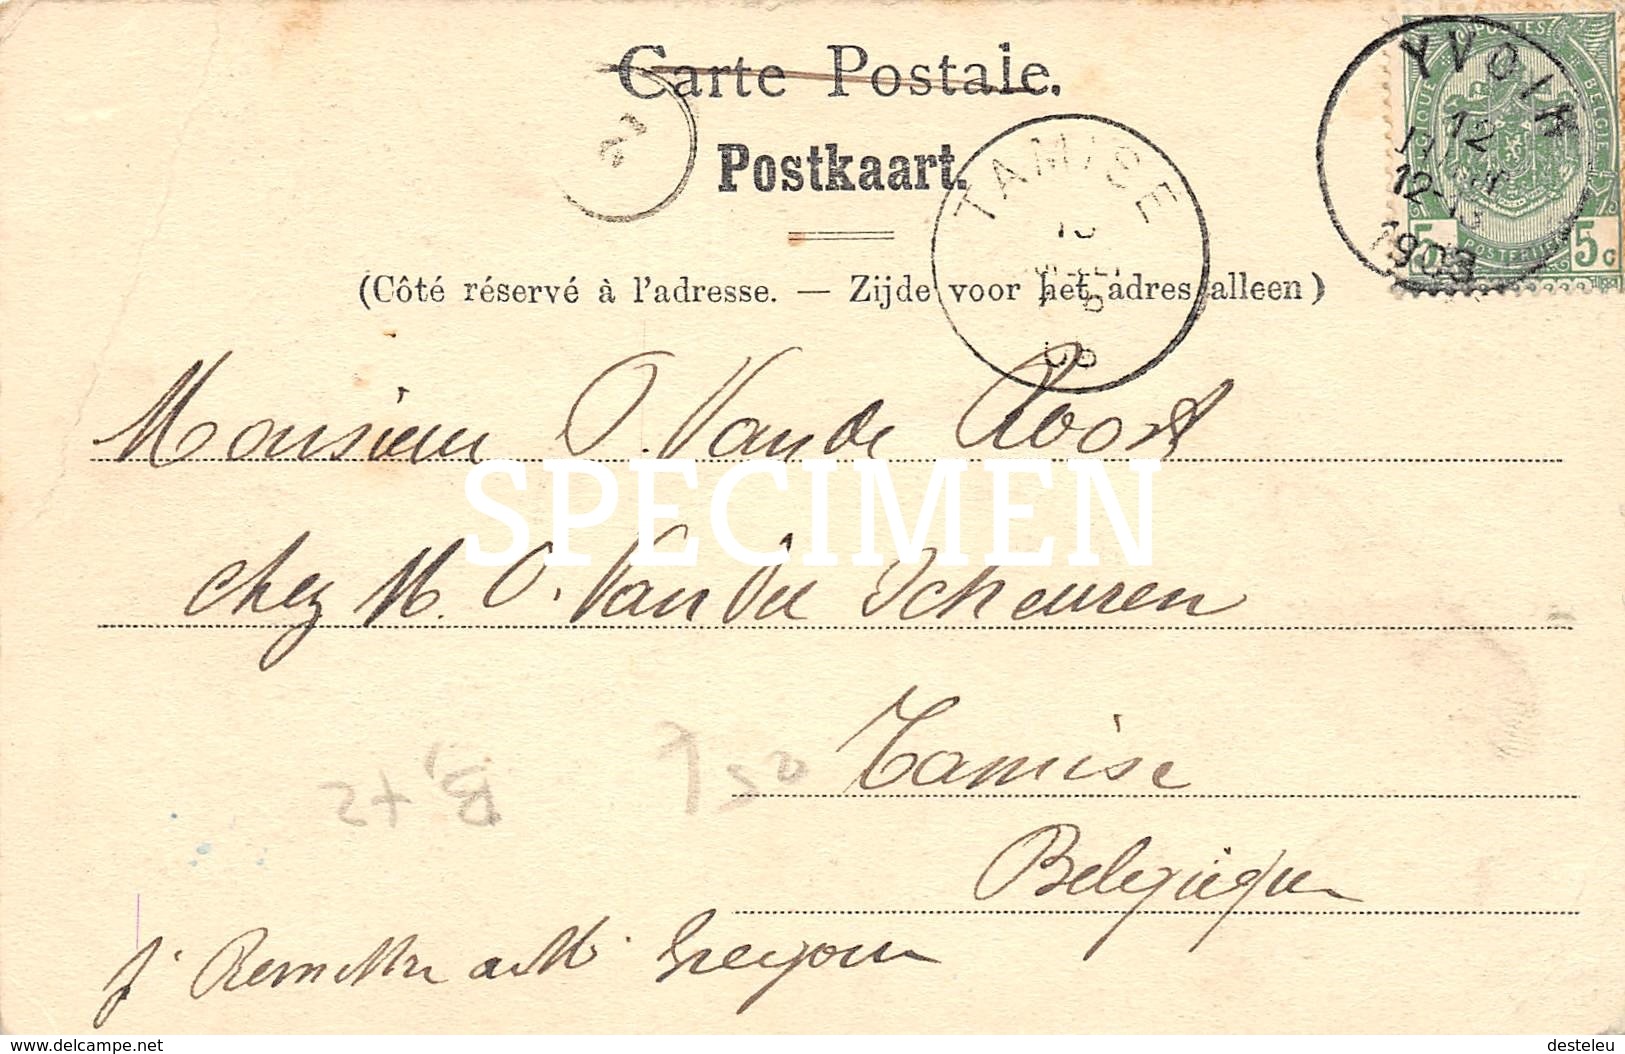 Carte Postale.
Postkaart.
(Côté réservé à l'adresse. — Zijde voor het adres alleen)
POSTES
BELGIQUE BELGIE
POSTERIJEN
5 5c
YVOIR
12
12-13
1903
TAMISE
Monsieur O. Van de Roost
SPECIMEN
chez M. O. Van der Scheuren
Tamise
Belgique
B. +2
750
Remettre a M. Gregoire
www.delcampe.net
desteleu